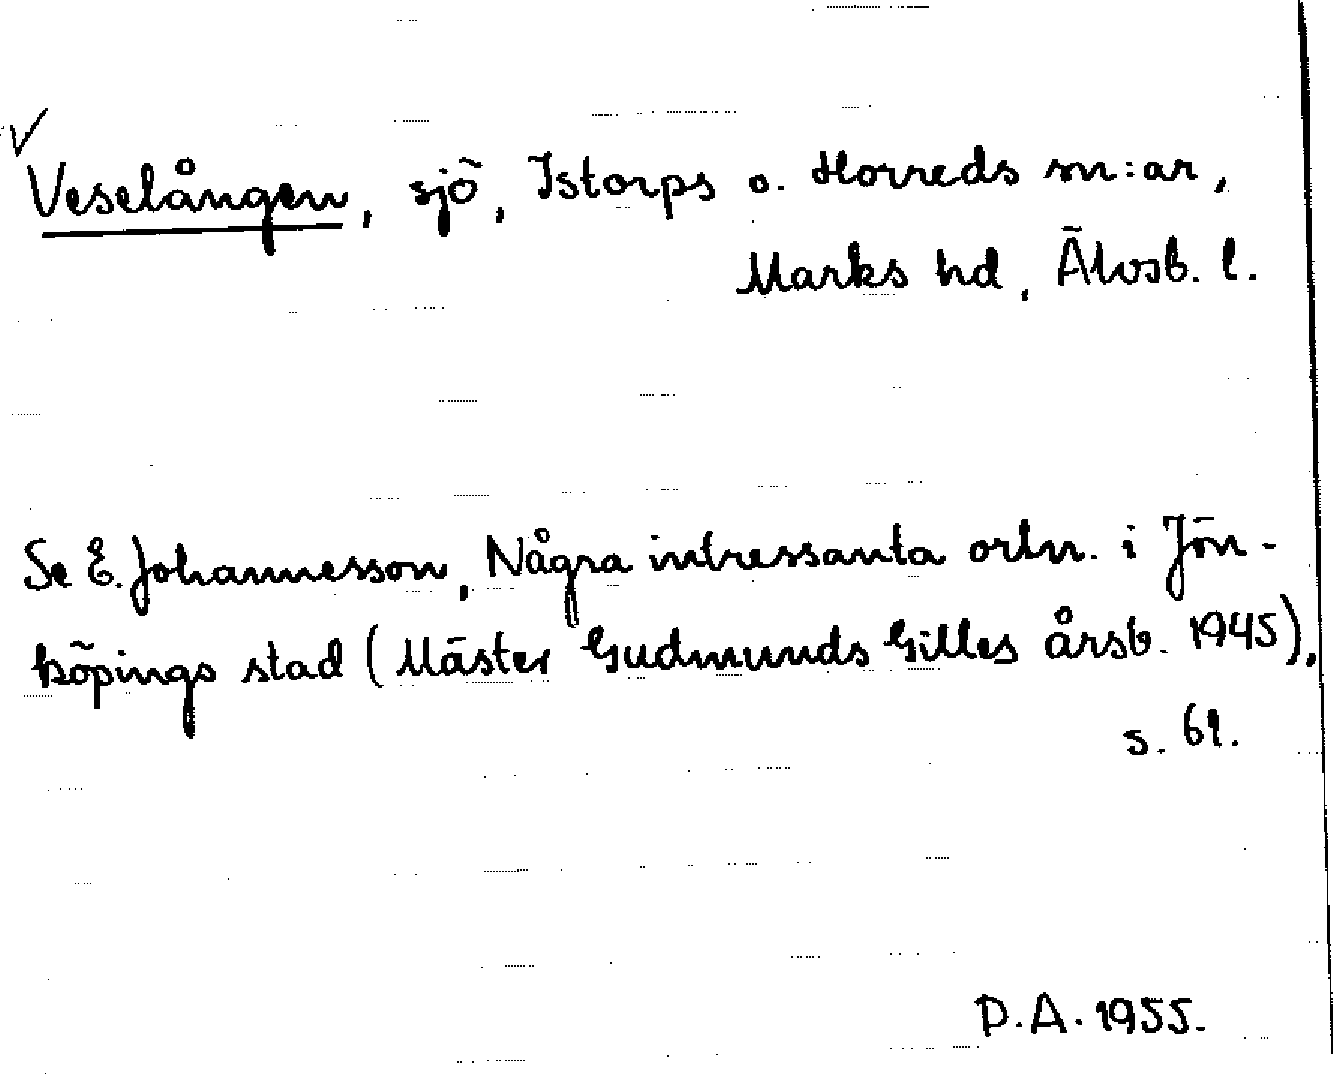 ✓
Veselången, sjö, Istorps o. Horreds sn:ar,
Marks hd, Älvsb. l.
Se E. Johannesson, Några intressanta ortn. i Jön-
köpings stad (Mäster Gudmunds Gilles årsb. 1945),
s. 61.
D.A. 1955.